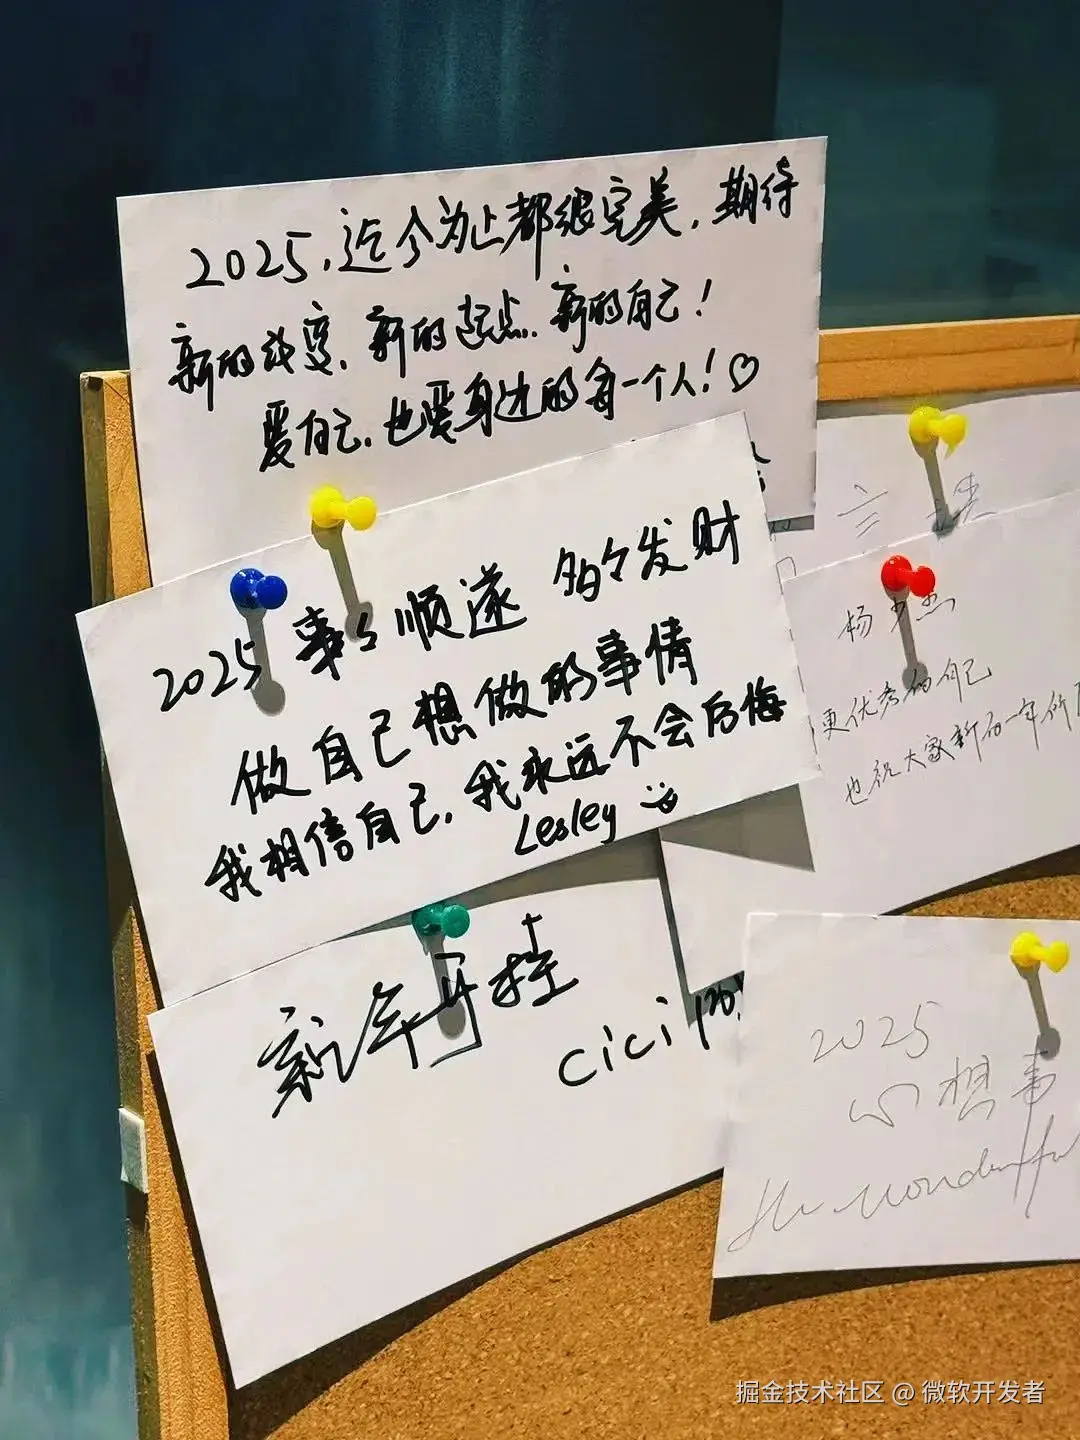 2025,迄今为止都很完美,期待
新的改变、新的起点、新的自己!
爱自己,也爱身边的每一个人!♡
2025 事々顺遂 多多发财
做自己想做的事情
我相信自己,我永远不会后悔
Lesley
新年
cici
杨
更优秀的自己
也祝大家新的一年所
2025
心想事
wonderful
掘金技术社区 @ 微软开发者